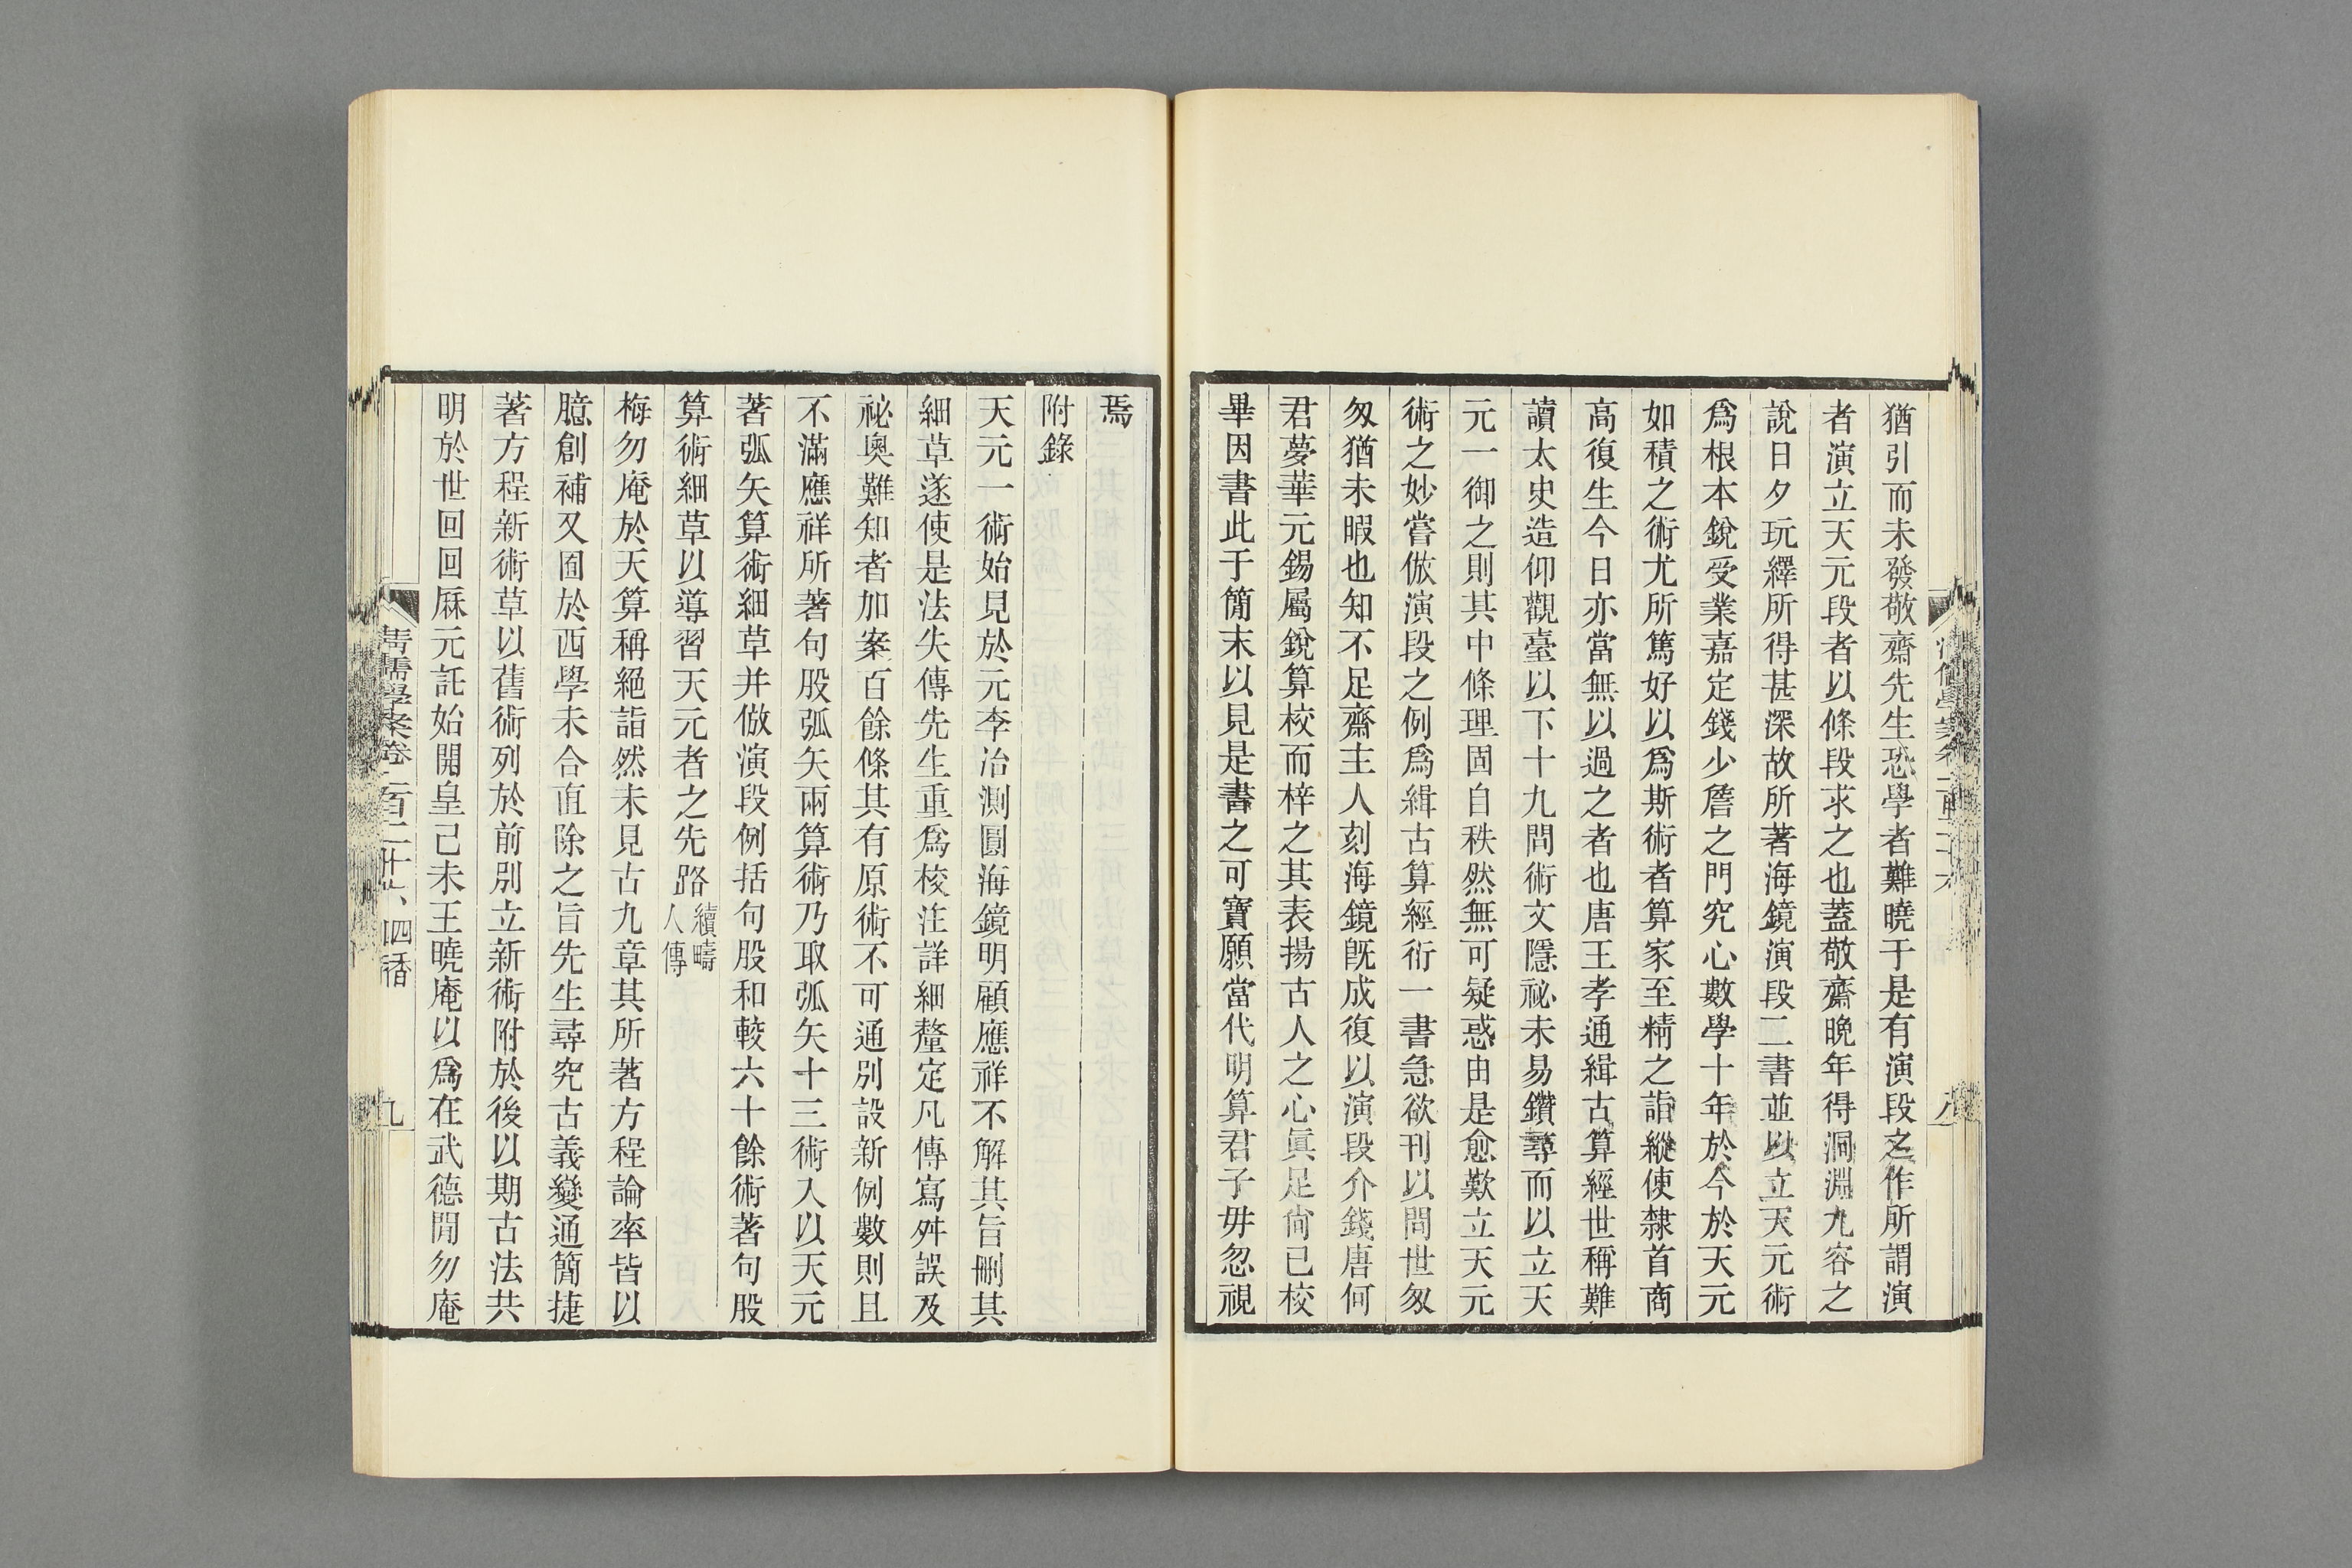 猶引而未發敬齋先生恐學者難曉于是有演段之作所謂演
者演立天元段者以條段求之也蓋敬齋晚年得洞淵九容之
說日夕玩繹所得甚深故所著海鏡演段二書並以立天元術
爲根本銳受業嘉定錢少詹之門究心數學十年於今於天元
如積之術尤所篤好以爲斯術者算家至精之詣縱使隸首商
高復生今日亦當無以過之者也唐王孝通緝古算經世稱難
讀太史造仰觀臺以下十九問術文隱祕未易鑽尋而以立天
元一御之則其中條理固自秩然無可疑惑由是愈歎立天元
術之妙嘗倣演段之例爲緝古算經衍一書急欲刊以問世匆
匆猶未暇也知不足齋主人刻海鏡旣成復以演段介錢唐何
君夢華元錫屬銳算校而梓之其表揚古人之心眞足尙已校
畢因書此于簡末以見是書之可寶願當代明算君子毋忽視
焉
附錄
天元一術始見於元李冶測圓海鏡明顧應祥不解其旨刪其
細草遂使是法失傳先生重爲校注詳細釐定凡傳寫舛誤及
祕奧難知者加案百餘條其有原術不可通別設新例數則且
不滿應祥所著句股弧矢兩算術乃取弧矢十三術入以天元
著弧矢算術細草并倣演段例括句股和較六十餘術著句股
算術細草以導習天元者之先路續疇人傳
梅勿庵於天算稱絕詣然未見古九章其所著方程論率皆以
臆創補又囿於西學未合直除之旨先生尋究古義變通簡捷
著方程新術草以舊術列於前別立新術附於後以期古法共
明於世回回厤元託始開皇己未王曉庵以爲在武德閒勿庵
清儒學案卷一百二十六 四香
九